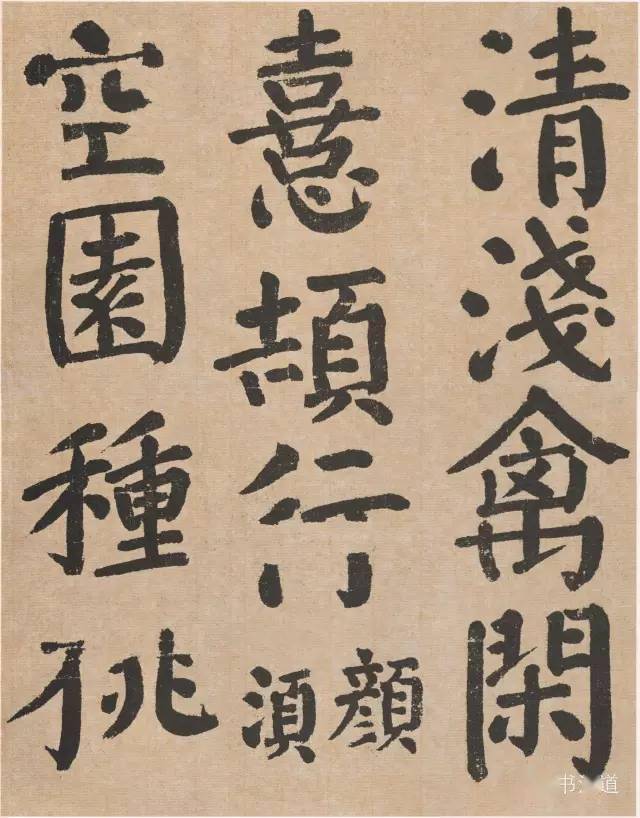 清淺禽閑
憙頡行顔湏
空園種桃